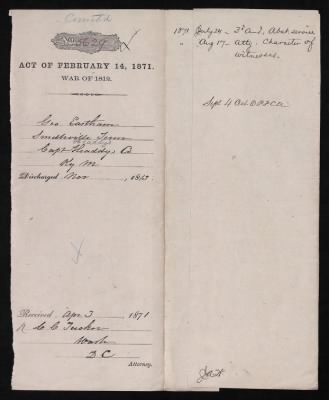 No. 5629
ACT OF FEBRUARY 14, 1871.
WAR OF 1812.
Geo Eastham
Smithville Tenn
Capt Headdy, Co
Ky M
Discharged Nov , 1813
Received Apr 3 1871
C C Tucker
Wash
D.C
Attorney.
1871 July 24 - 3d Aud. Abst service
" Aug 17 - Atty. Character of
witnesses.
Sept 4